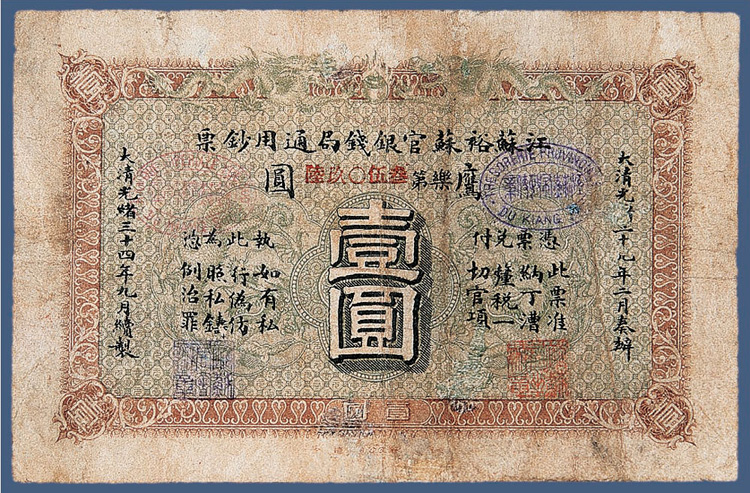 江蘇裕蘇官銀錢局通用鈔票
鷹
樂第叁伍〇玖陸
圓
大清光緒二十九年二月奏辦
憑票兌付
此票准
納丁漕
釐稅一
切官項
壹圓
執此為憑
如有私
行偽仿
照私鑄
例治罪
大清光緒三十四年九月續製
DU KIANG
壹圓